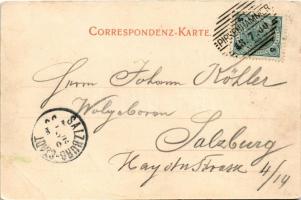 CORRESPONDENZ-KARTE.
Herrn Johann Köhler
Wolgeboren
Salzburg
Haydnstrasse 4/14
SALZBURG-STADT